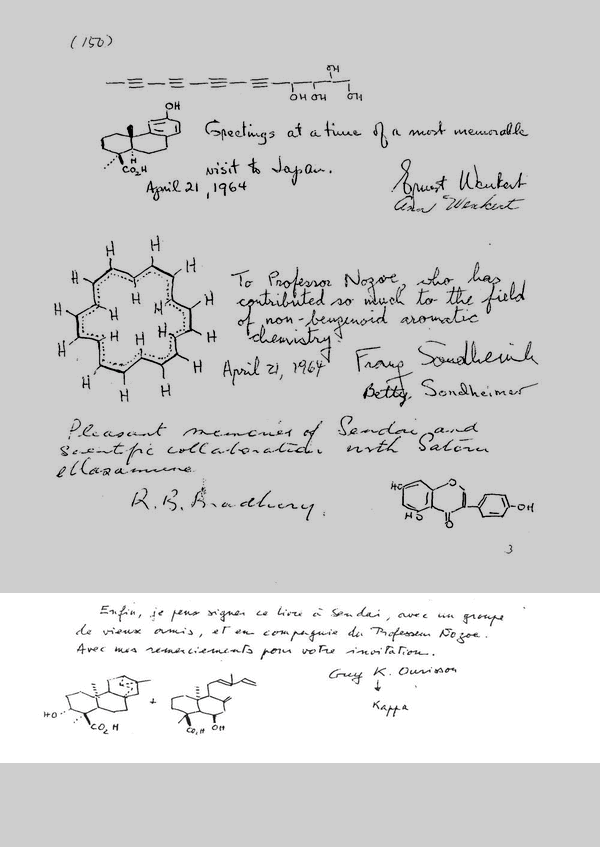 (150)
OH
OH OH OH
OH
CO2H
Greetings at a time of a most memorable
visit to Japan.
April 21, 1964
Ernest Wenkert
Ann Wenkert
H H H H H H H H H H H H H H H H H H
To Professor Nozoe, who has
contributed so much to the field
of non-benzenoid aromatic
chemistry
April 21, 1964
Franz Sondheimer
Betty Sondheimer
Pleasant memories of Sendai and
scientific collaboration with
R. B. Bradbury.
HO O OH
HO O
3
Enfin, je peux signer ce livre à Sendai, avec un groupe
de vieux amis, et en compagnie du Professeur Nozoe.
Avec mes remerciements pour votre invitation.
Guy K. Ourisson
↓
Kappa
HO CO2H + CO2H OH